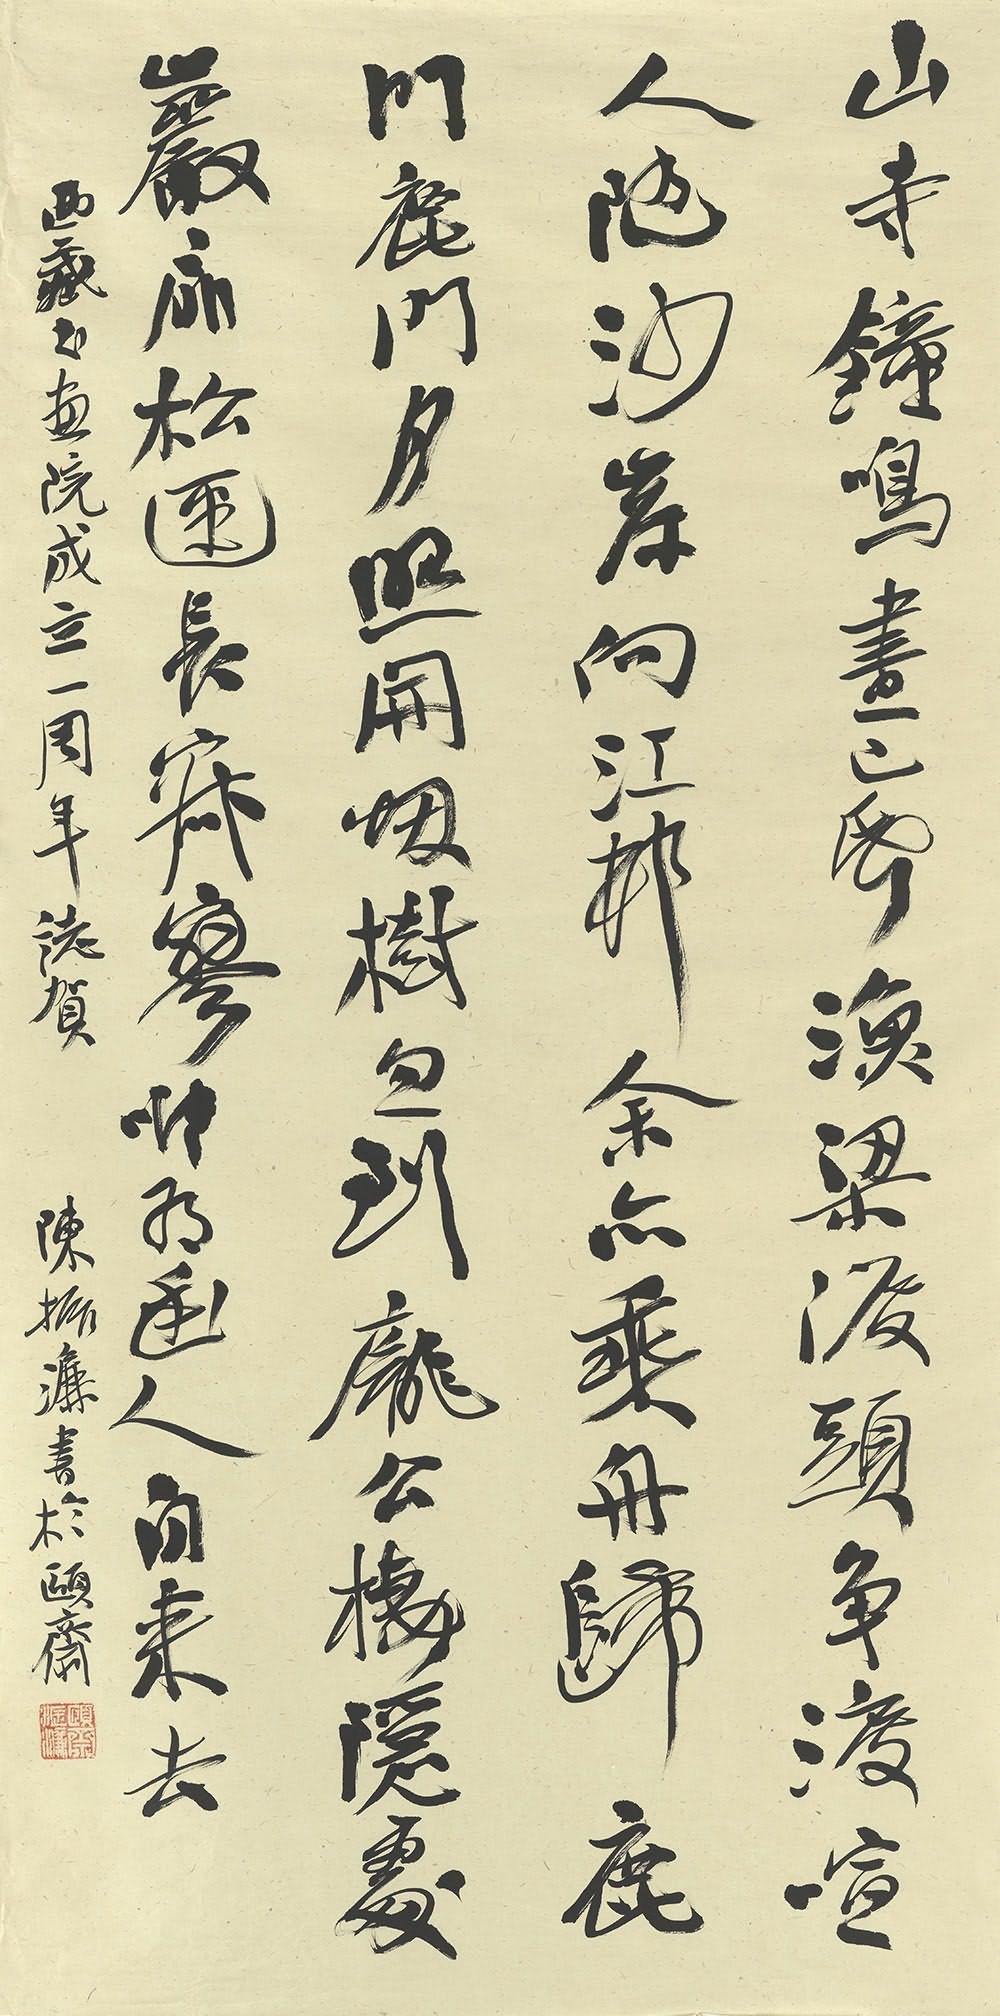 山寺鐘鳴晝已昏漁梁渡頭争渡喧
人隨沙岸向江邨余亦乘舟歸鹿
門鹿門月照開烟樹忽到龐公棲隱處
巖扉松逕長寂寥唯有幽人自來去
西藏书画院成立一周年誌賀 陳振濂書於頤齋